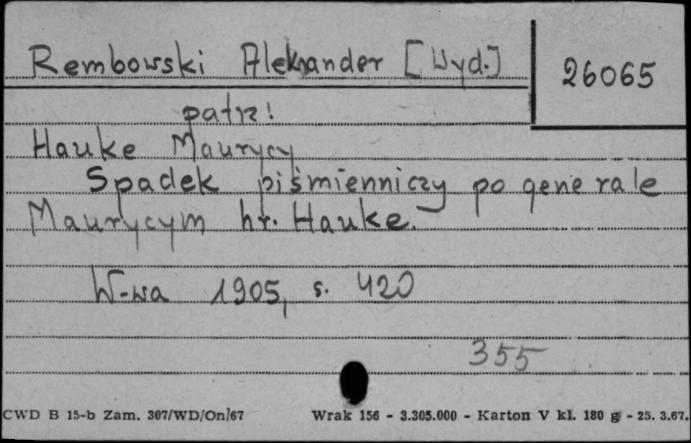 Rembowski Aleksander [Wyd.]
26065
patrz!
Hauke Maurycy
Spadek piśmienniczy po generale
Maurycym hr. Hauke.
W-wa 1905, s. 420
355
CWD B 15-b Zam. 307/WD/On/67 Wrak 156 - 3.305.000 - Karton V kl. 180 g - 25. 3.67.